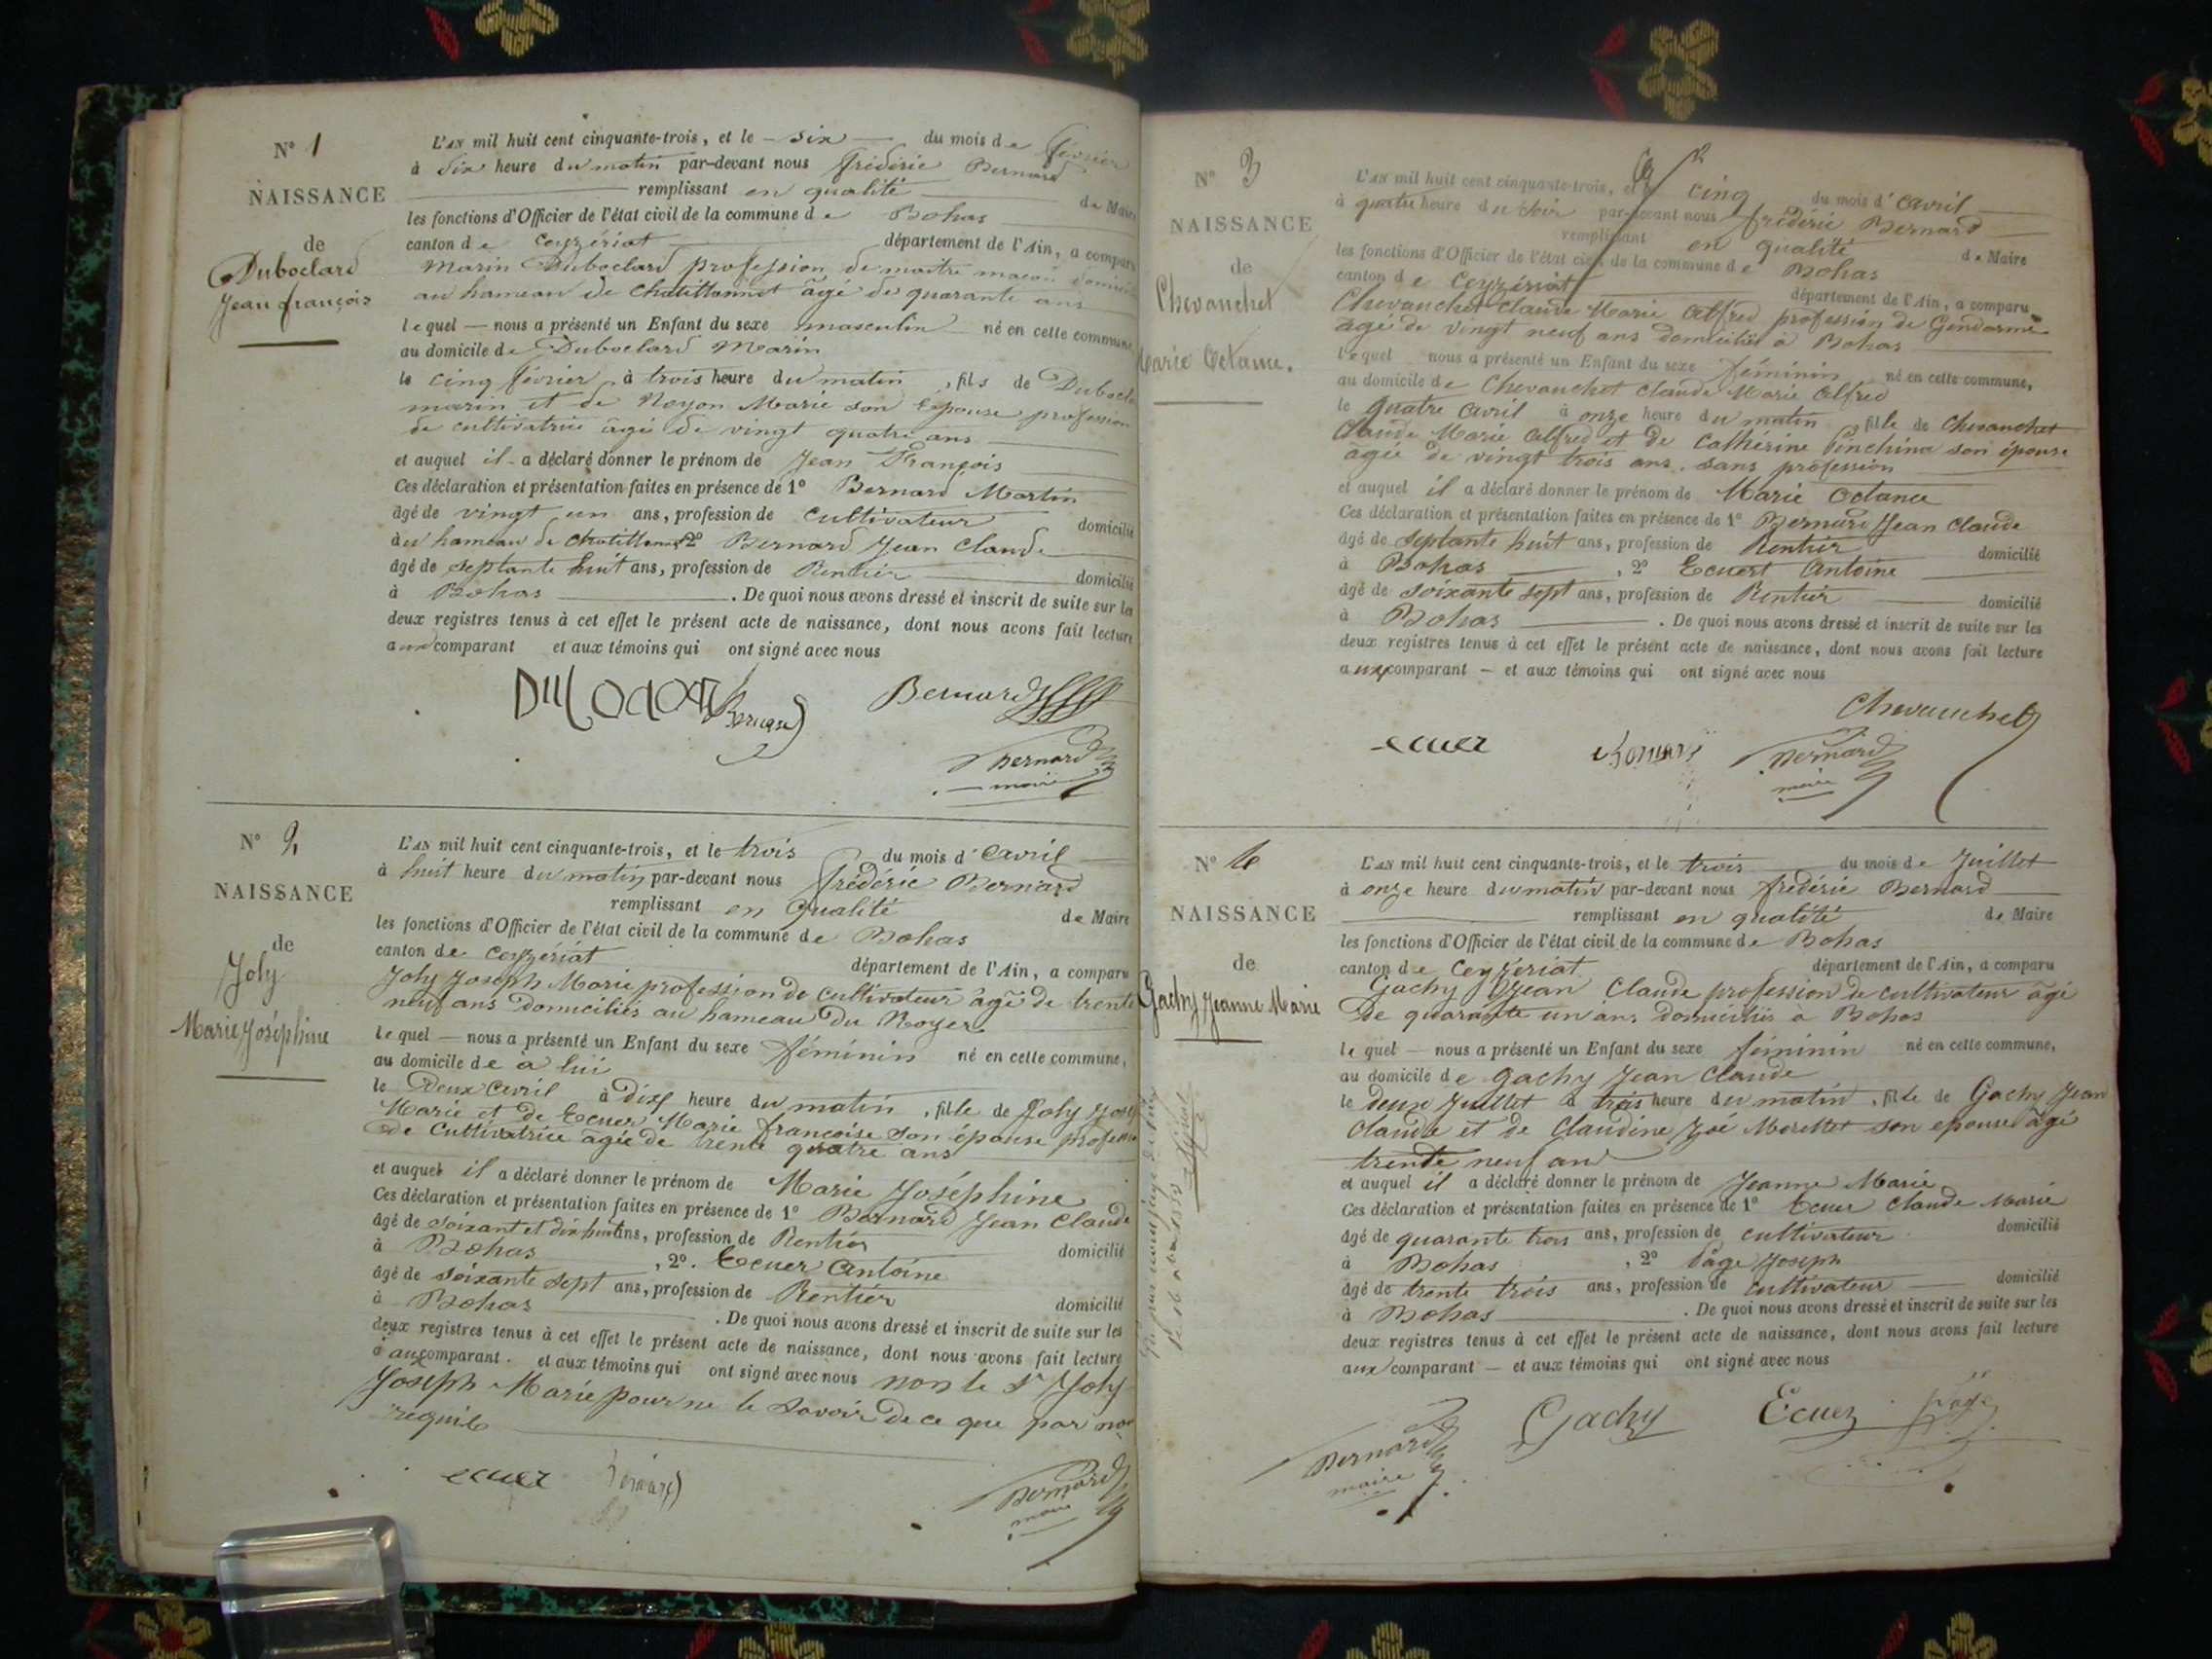 N° 1
NAISSANCE
de
Duboclard
Jean françois
L'AN mil huit cent cinquante-trois, et le six du mois de février
à six heure du matin par-devant nous frédéric Bernard
remplissant en qualité de Maire
les fonctions d'Officier de l'état civil de la commune de Bohas
canton de Ceyzériat département de l'Ain, a comparu
Marin Duboclard profession de maitre maçon
au hameau de Chatillonnet âgé de quarante ans
lequel — nous a présenté un Enfant du sexe masculin né en cette commune
au domicile de Duboclard Marin
le cinq février à trois heure du matin, fils de
marin et de Noyon Marie son Epouse profession
de cultivatrice âgé de vingt quatre ans
et auquel il a déclaré donner le prénom de Jean François
Ces déclaration et présentation faites en présence de 1° Bernard Martin
âgé de vingt un ans, profession de Cultivateur domicilié
au hameau de 2° Bernard Jean Claude
âgé de septante huit ans, profession de Rentier domicilié
à Bohas . De quoi nous avons dressé et inscrit de suite sur les
deux registres tenus à cet effet le présent acte de naissance, dont nous avons fait lecture
au comparant et aux témoins qui ont signé avec nous
Bernard
Bernard
Bernard
maire
N° 2
NAISSANCE
de
Joly
Marie Joséphine
L'AN mil huit cent cinquante-trois, et le trois du mois d'avril
à huit heure du matin par-devant nous frédéric Bernard
remplissant en qualité de Maire
les fonctions d'Officier de l'état civil de la commune de Bohas
canton de Ceyzériat département de l'Ain, a comparu
Joly Joseph Marie profession de cultivateur âgé de trente
neuf ans domiciliés au hameau du Royer
lequel — nous a présenté un Enfant du sexe féminin né en cette commune,
au domicile de à lui
le deux avril à dix heure du matin, fille de Joly
Marie et de Ecuer Marie françoise son épouse
de Cultivatrice âgée de trente quatre ans
et auquel il a déclaré donner le prénom de Marie Joséphine
Ces déclaration et présentation faites en présence de 1° Bernard Jean Claude
âgé de soixant et dix huit ans, profession de Rentier
à Bohas domicilié
, 2°. Ecuer Antoine
âgé de soixante sept ans, profession de Rentier
à Bohas domicilié
. De quoi nous avons dressé et inscrit de suite sur les
deux registres tenus à cet effet le présent acte de naissance, dont nous avons fait lecture
au comparant. et aux témoins qui ont signé avec nous non le Sr Joly
Joseph Marie pour ne le savoir de ce que par nous
requis
ecuer
Bernard
Bernard
maire
N° 3
NAISSANCE
de
Chevauchet
Marie Octance.
L'AN mil huit cent cinquante-trois, et le cinq du mois d'avril
à quatre heure du soir par-devant nous frédéric Bernard
remplissant en qualité de Maire
les fonctions d'Officier de l'état civil de la commune de Bohas
canton de Ceyzériat département de l'Ain, a comparu
Chevauchet Claude Marie Alfred profession de Gendarme
âgé de vingt neuf ans domicilié à Bohas
lequel nous a présenté un Enfant du sexe féminin né en cette commune,
au domicile de Chevauchet Claude Marie Alfred
le quatre Avril à onze heure du matin, fille de Chevauchet
Claude Marie Alfred et de Cathérine Pinchina son épouse
âgée de vingt trois ans. sans profession
et auquel il a déclaré donner le prénom de Marie Octance
Ces déclaration et présentation faites en présence de 1° Bernard Jean Claude
âgé de septante huit ans, profession de Rentier domicilié
à Bohas , 2° Ecuert Antoine
âgé de soixante sept ans, profession de Rentier domicilié
à Bohas . De quoi nous avons dressé et inscrit de suite sur les
deux registres tenus à cet effet le présent acte de naissance, dont nous avons fait lecture
aux comparant — et aux témoins qui ont signé avec nous
Chevauchet
ecuer
Bernard
Bernard
maire
N° 4
NAISSANCE
de
Gachy Jeanne Marie
L'AN mil huit cent cinquante-trois, et le trois du mois de Juillet
à onze heure du matin par-devant nous frédéric Bernard
remplissant en qualité de Maire
les fonctions d'Officier de l'état civil de la commune de Bohas
canton de Ceyzériat département de l'Ain, a comparu
Gachy Jean Claude profession de cultivateur âgé
De quarante un ans domiciliés à Bohas
lequel — nous a présenté un Enfant du sexe féminin né en cette commune,
au domicile de Gachy Jean Claude
le deux Juillet à trois heure du matin, fille de Gachy Jean
Claude et de Claudine Zoé Morellet son epouse âgé
trente neuf ans
et auquel il a déclaré donner le prénom de Jeanne Marie
Ces déclaration et présentation faites en présence de 1° Ecuer Claude Marie
âgé de quarante trois ans, profession de cultivateur domicilié
à Bohas , 2° Page Joseph
âgé de trente trois ans, profession de cultivateur domicilié
à Bohas . De quoi nous avons dressé et inscrit de suite sur les
deux registres tenus à cet effet le présent acte de naissance, dont nous avons fait lecture
aux comparant — et aux témoins qui ont signé avec nous
Bernard
maire
Gachy
Ecuer
page